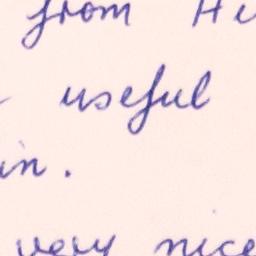 from
useful
in.
very nice